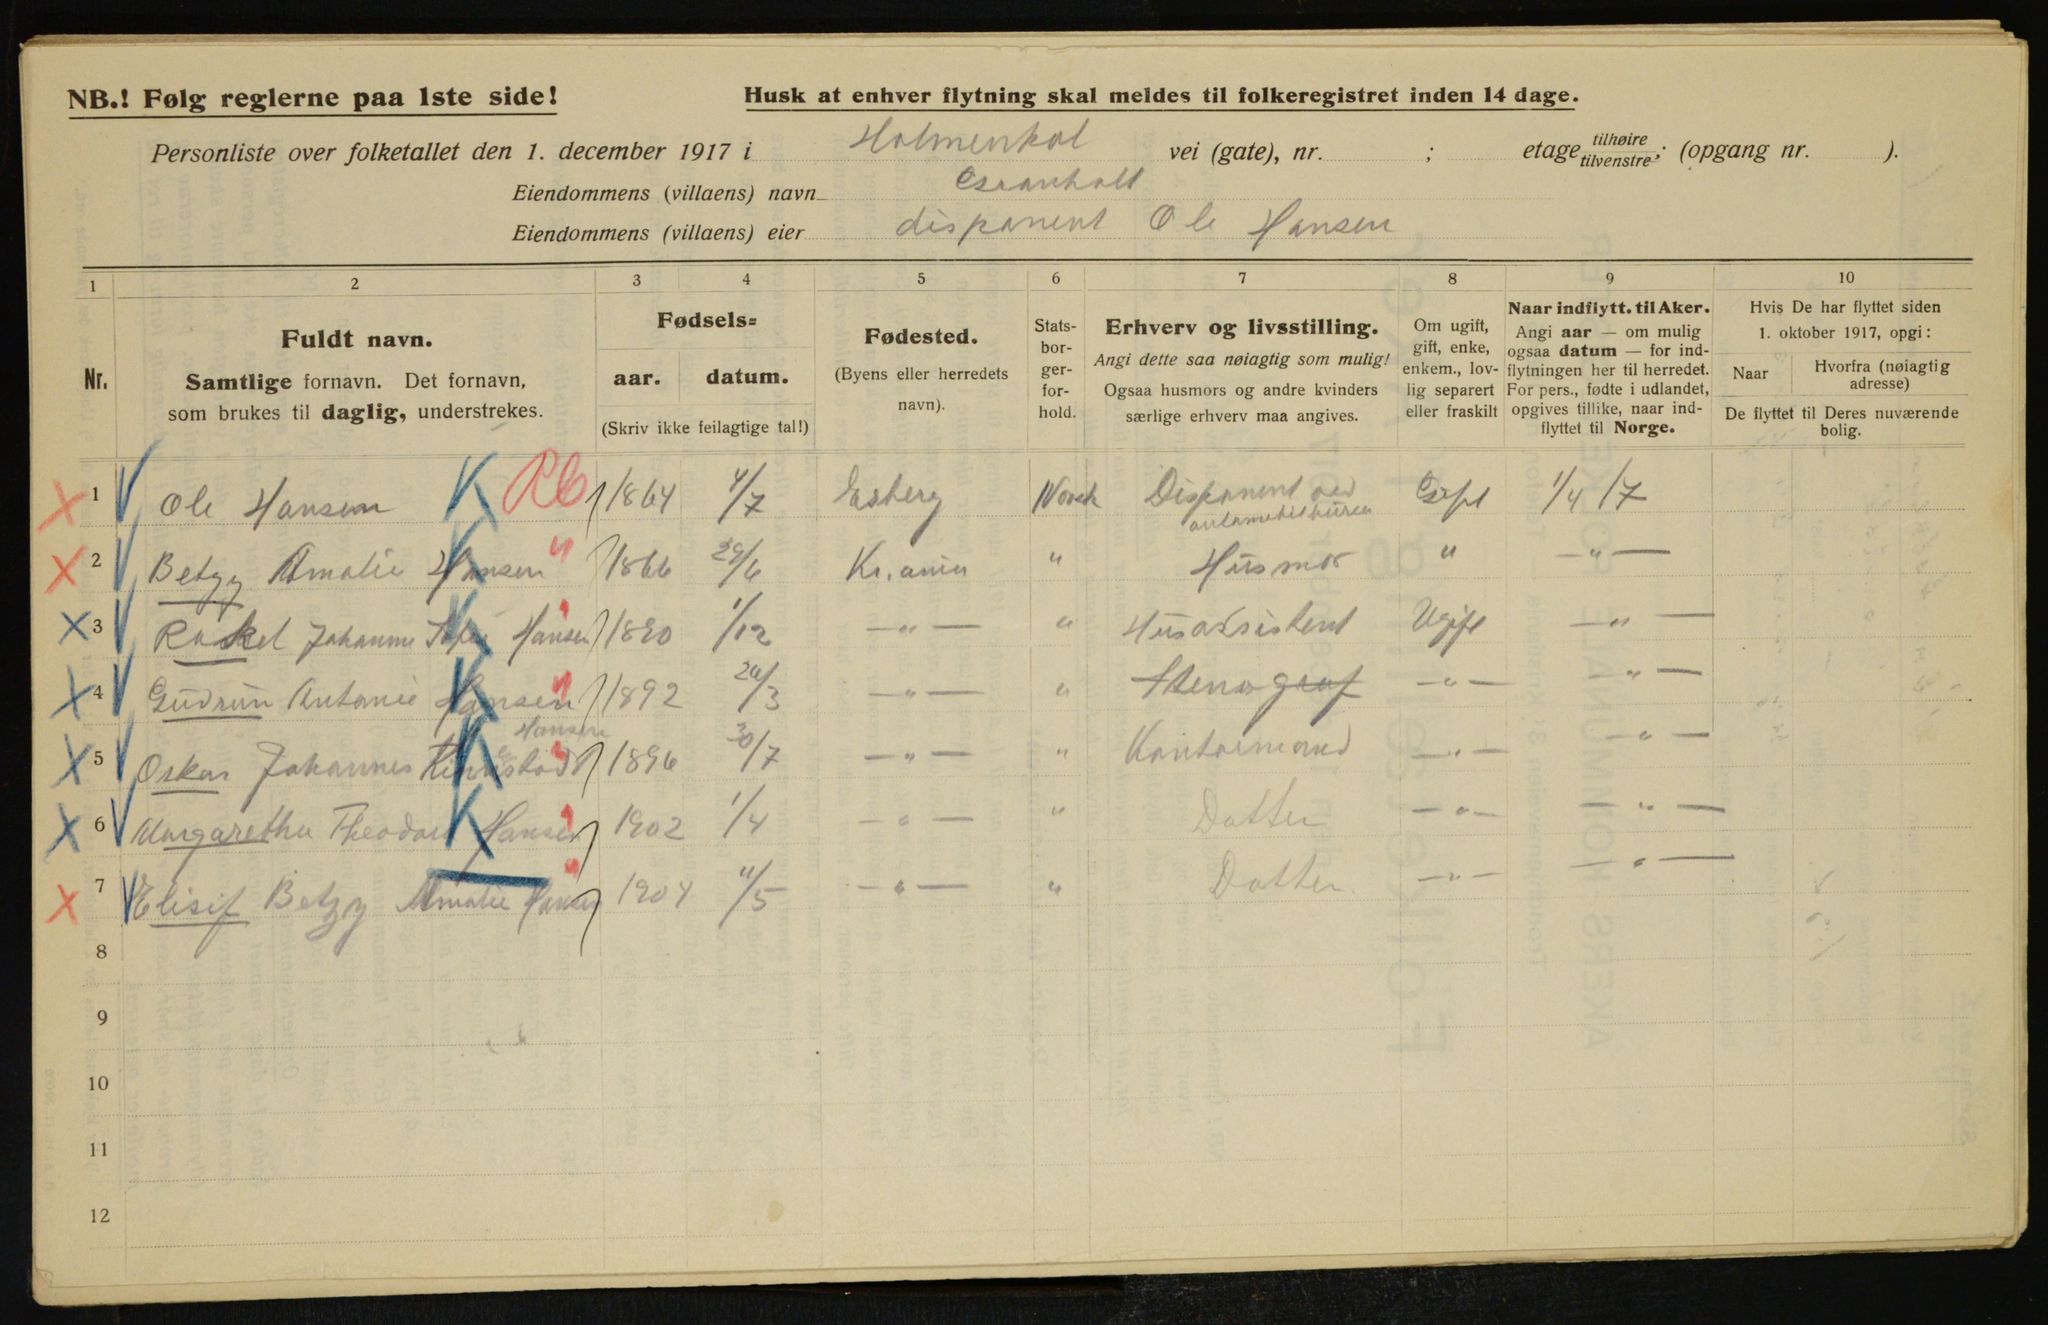 NB.! Følg reglerne paa 1ste side!
Husk at enhver flytning skal meldes til folkeregistret inden 14 dage.
Personliste over folketallet den 1. december 1917 i Holmenkol vei (gate), nr. ; etage tilhøire tilvenstre; (opgang nr. ).
Eiendommens (villaens) navn
Eiendommens (villaens) eier disponent Ole Hansen
1 2 3 4 5 6 7 8 9 10
Nr.
Fuldt navn.
Samtlige fornavn. Det fornavn,
som brukes til daglig, understrekes.
Fødsels=
aar. datum.
(Skriv ikke feilagtige tal!)
Fødested.
(Byens eller herredets
navn).
Stats-
bor-
ger-
for-
hold.
Erhverv og livsstilling.
Angi dette saa nøiagtig som mulig!
Ogsaa husmors og andre kvinders
særlige erhverv maa angives.
Om ugift,
gift, enke,
enkem., lov-
lig separert
eller fraskilt
Naar indflytt. til Aker.
Angi aar — om mulig
ogsaa datum — for ind-
flytningen her til herredet.
For pers., fødte i utlandet,
opgives tillike, naar ind-
flyttet til Norge.
Hvis De har flyttet siden
1. oktober 1917, opgi:
Naar
Hvorfra (nøiagtig
adresse)
De flyttet til Deres nuværende
bolig.
1 Ole Hansen K 1864 4/7 Norsk Disponent ved Gift 1/4 17
2 Betzy Amalie Hansen " 1866 29/6 Kr.ania " Husmor " — " —
3 Rakel Johanne Hansen K 1890 1/12 — " — " Husassistent Ugift — " —
4 Gudrun Antonie Hansen K 1892 1/3 — " — " Stenograf — " — " —
Hansen
5 Oskar Johannes K 1896 30/7 — " — " Kontormand — " — — " —
6 Margaretha Theodora Hansen K 1902 1/4 — " — " Datter — " — — " —
7 Elisif Betzy Amalie Hansen 1904 11/5 — " — " Datter — " — — " —
8
9
10
11
12